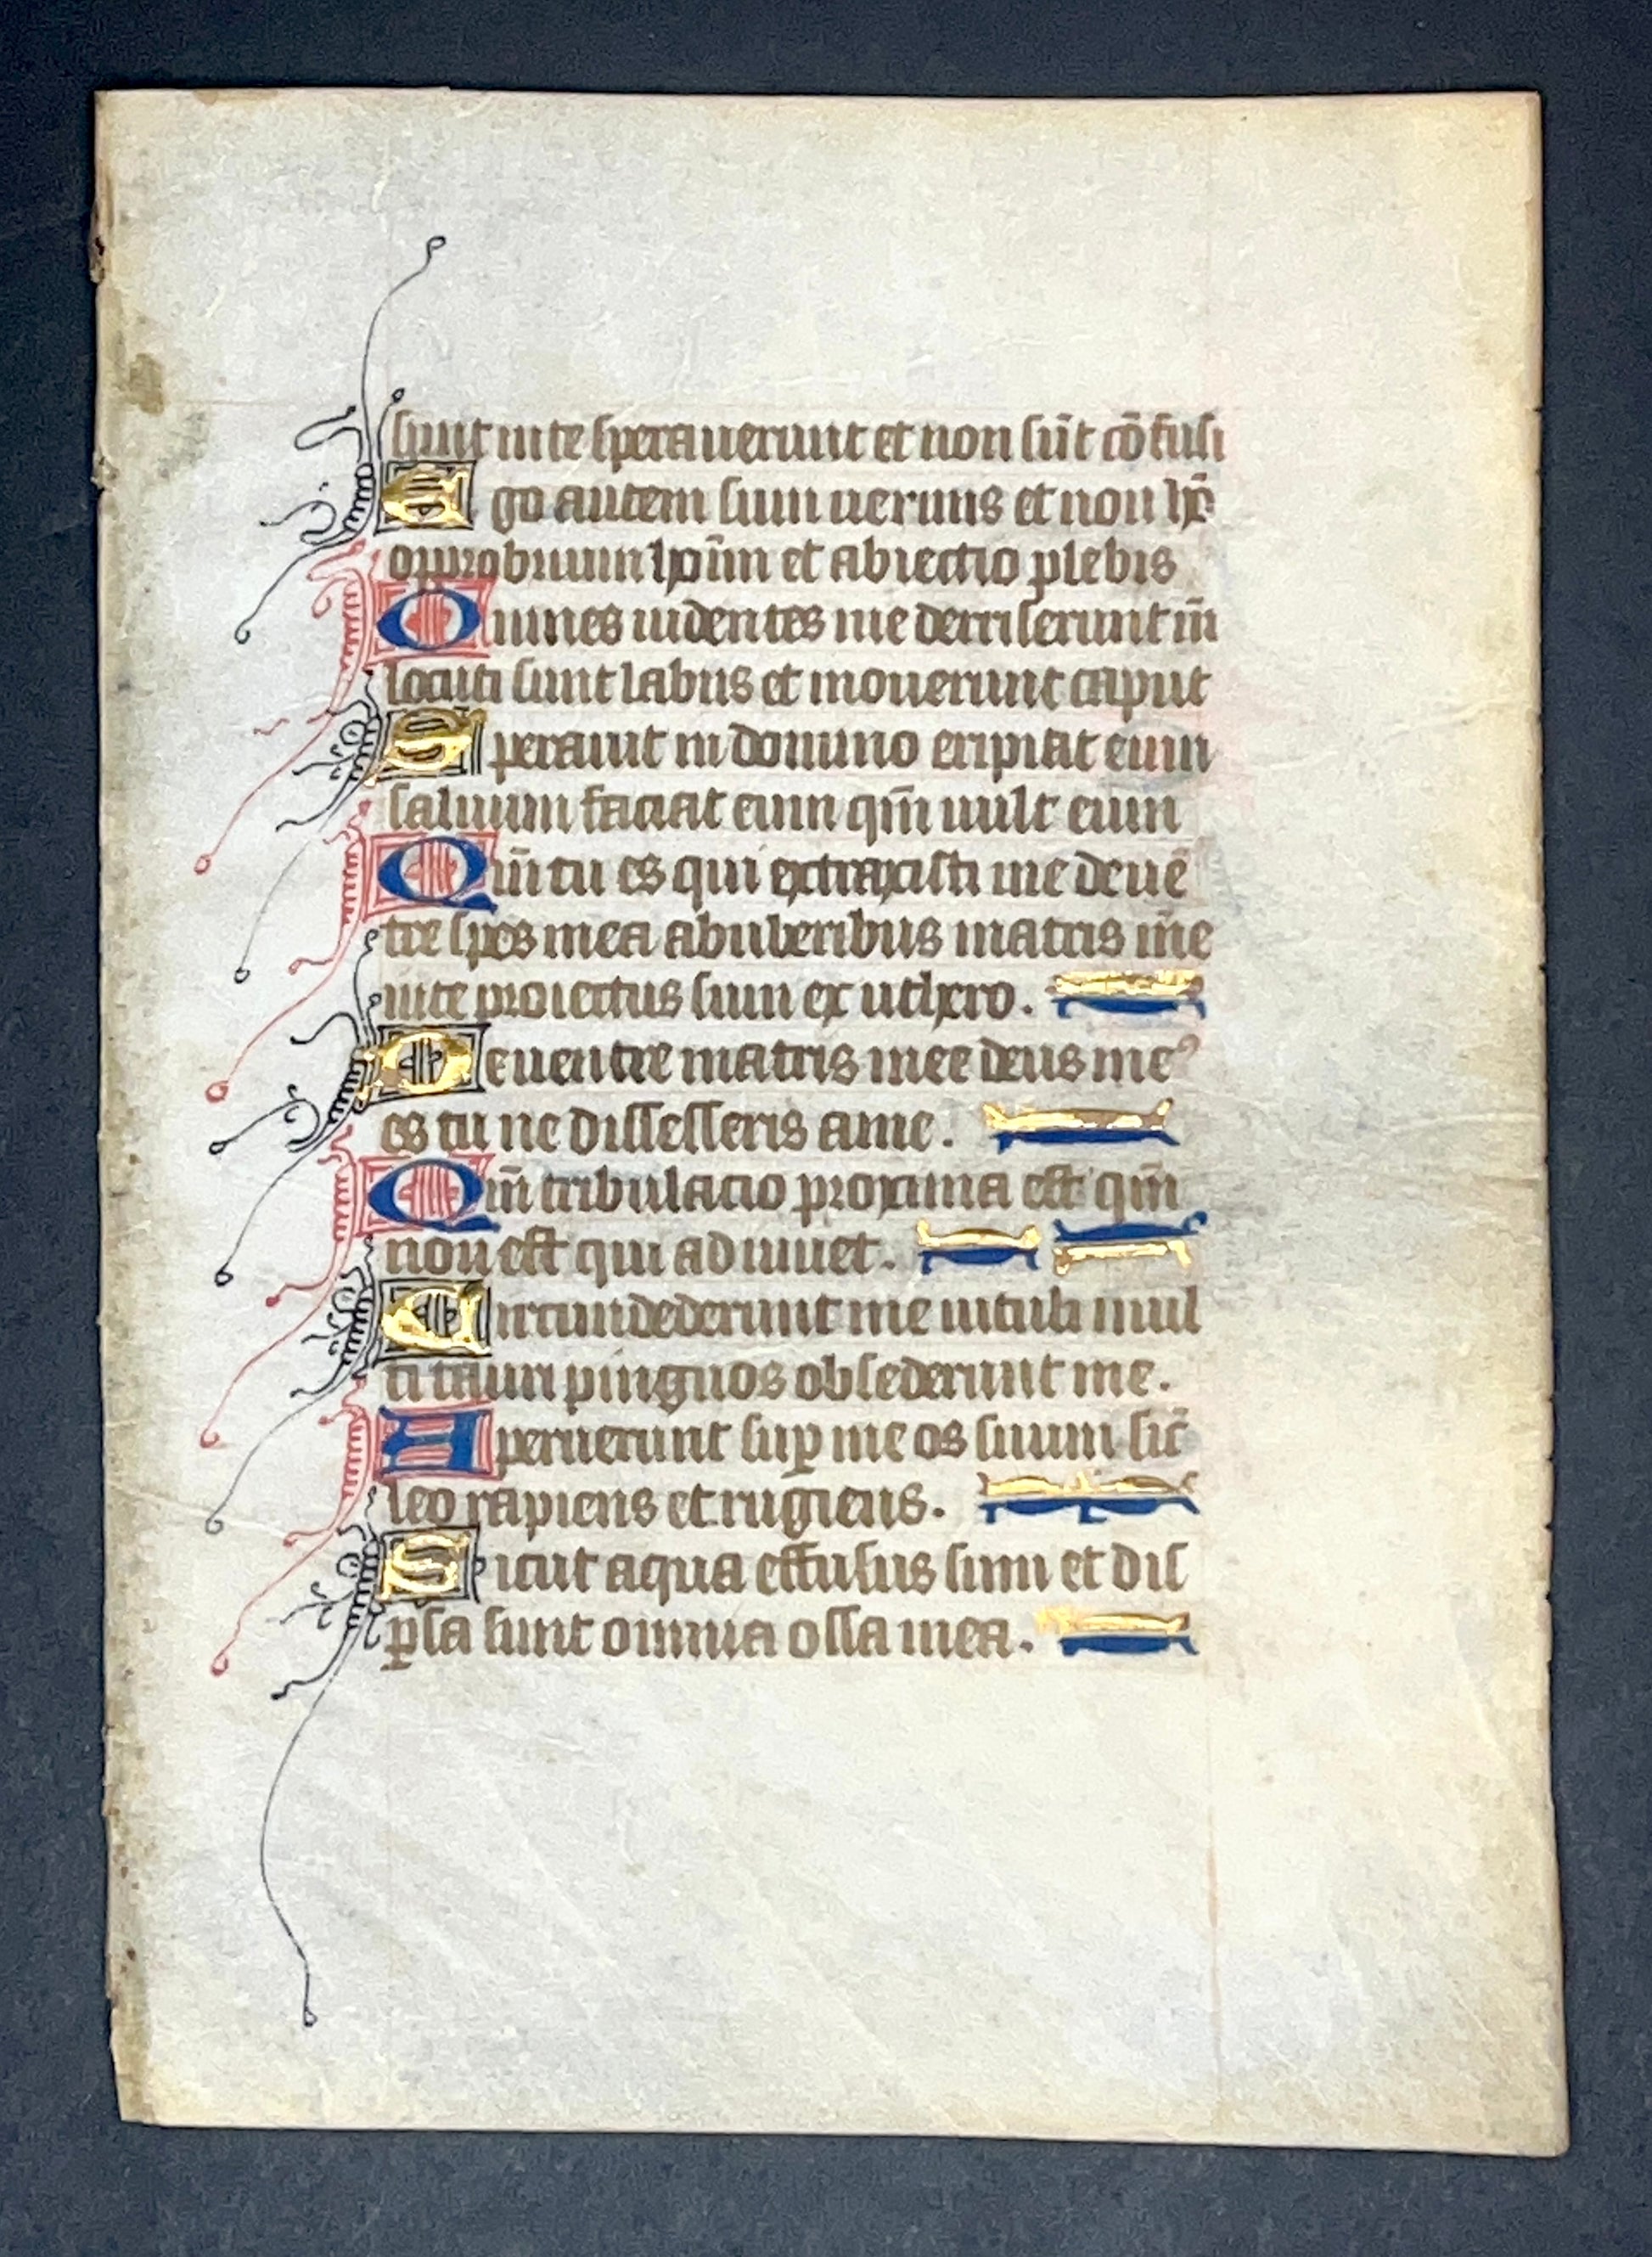 sunt in te speraverunt et non sūt cōfusi
Ego autem sum uermis et non hō
opprobrium hoīm et abiectio plebis
Omnes uidentes me derriserunt m̄
locuti sunt labiis et mouerunt caput
Sperauit in domino eripiat eum
saluum faciat eum qm̄ uult eum
Qm̄ tu es qui extraxisti me de uē
tre spes mea ab uberibus matris m̄e
in te proiectus sum ex uthero.
De uentre matris mee deus meꝰ
es tu ne dissesseris a me.
Qm̄ tribulacio proxima est qm̄
non est qui adiuuet.
Circumdederunt me uituli mul
ti tauri pinguos obsederunt me.
Aperuerunt suꝑ me os suum sic̄
leo rapiens et rugiens.
Sicut aqua effusus sum et dis
ꝑsa sunt omnia ossa mea.